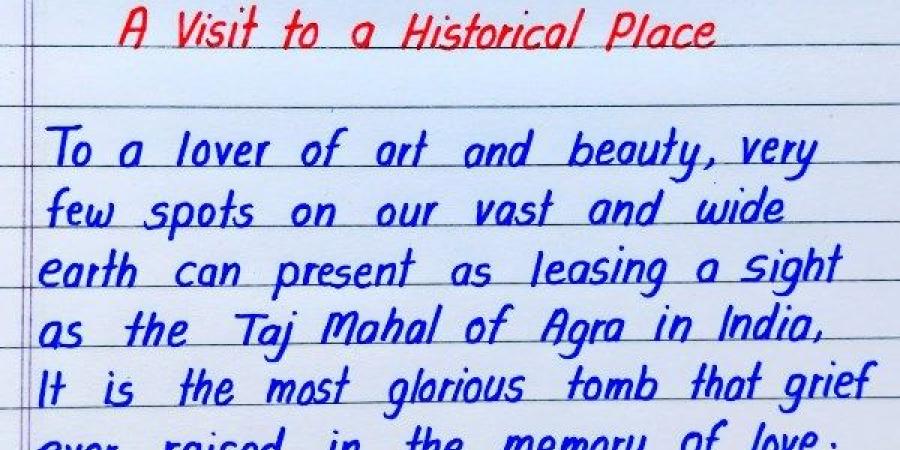 A Visit to a Historical Place
To a lover of art and beauty, very
few spots on our vast and wide
earth can present as leasing a sight
as the Taj Mahal of Agra in India,
It is the most glorious tomb that grief
ever raised in the memory of love.